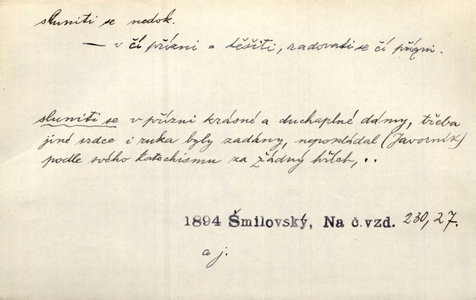 sluniti se nedok.
— v čí přízni = těšiti, radovati se čí přízni.
sluniti se v přízni krásné a duchaplné dámy, třeba
jiné srdce i ruka byly zadány, nepokládal (Javorník)
podle svého katechismu za žádný hřích, ..
1894 Šmilovský, Na č.vzd. 230,27.
a j.